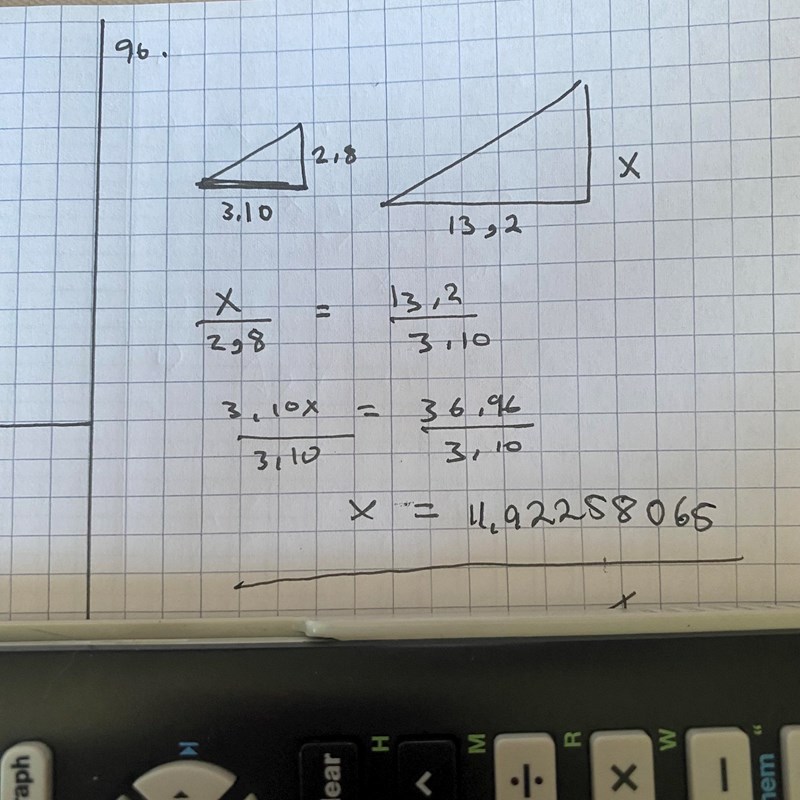 96.
2,8
3.10
x
13,2
x/2,8 = 13,2/3,10
3,10x/3,10 = 36,96/3,10
x = 11,92258065
x
raph
lear
H
M
÷
R
×
W
−
"
hem